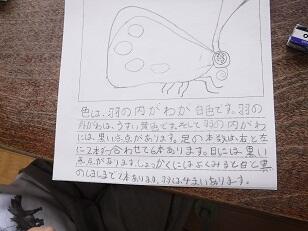 色は、羽の内がわが白色です。羽の
外がわは、うすい黄色です。そして羽の内がわに
は、黒い点があります。足の本数は、右と左
に3本ずつ合わせて6本あります。目には黒い
点があります。しょっかくにはよくみると白と黒
のしましまで2本あります。羽は4まいあります。